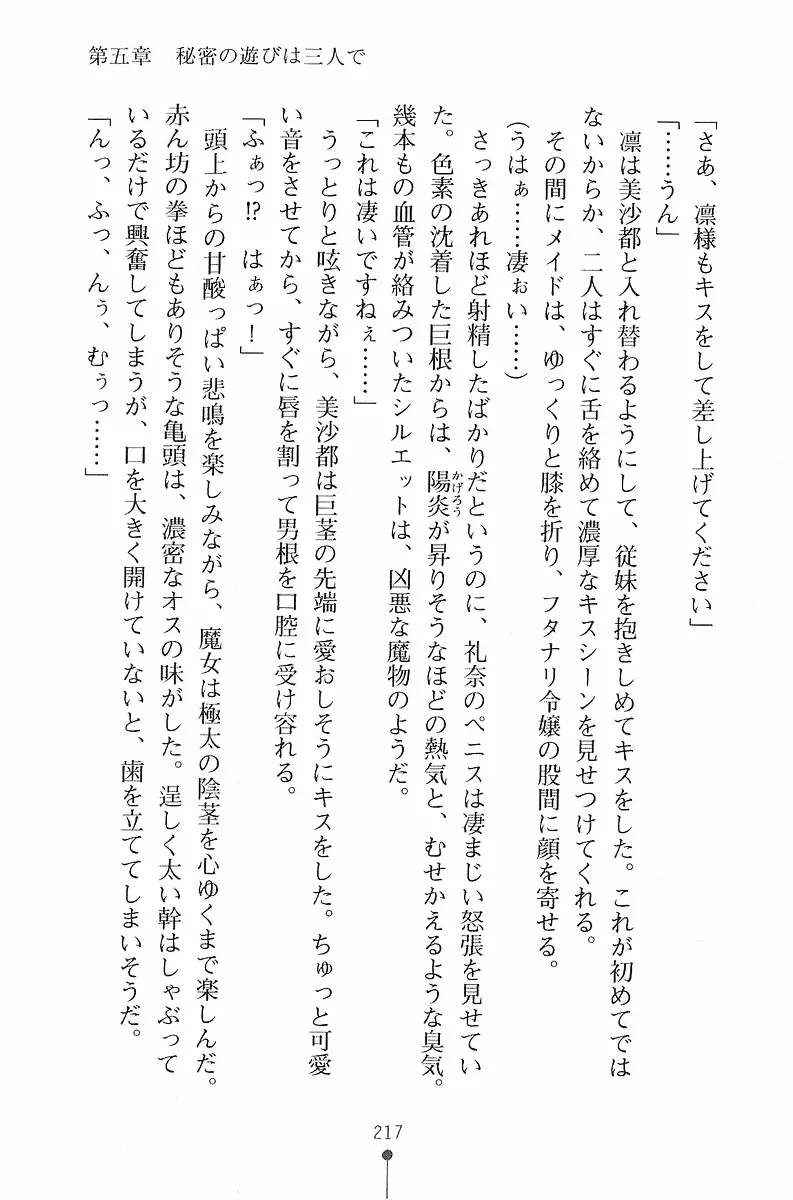 第五章　秘密の遊びは三人で
「さあ、凛様もキスをして差し上げてください」
「……うん」
　凛は美沙都と入れ替わるようにして、従妹を抱きしめてキスをした。これが初めてでは
ないからか、二人はすぐに舌を絡めて濃厚なキスシーンを見せつけてくれる。
　その間にメイドは、ゆっくりと膝を折り、フタナリ令嬢の股間に顔を寄せる。
(うはぁ……凄ぉい……)
　さっきあれほど射精したばかりだというのに、礼奈のペニスは凄まじい怒張を見せてい
た。色素の沈着した巨根からは、陽炎かげろうが昇りそうなほどの熱気と、むせかえるような臭気。
幾本もの血管が絡みついたシルエットは、凶悪な魔物のようだ。
「これは凄いですねぇ……」
　うっとりと呟きながら、美沙都は巨茎の先端に愛おしそうにキスをした。ちゅっと可愛
い音をさせてから、すぐに唇を割って男根を口腔に受け容れる。
「ふぁっ!?　はぁっ！」
　頭上からの甘酸っぱい悲鳴を楽しみながら、魔女は極太の陰茎を心ゆくまで楽しんだ。
赤ん坊の拳ほどもありそうな亀頭は、濃密なオスの味がした。逞しく太い幹はしゃぶって
いるだけで興奮してしまうが、口を大きく開けていないと、歯を立ててしまいそうだ。
「んっ、ふっ、んぅ、むぅっ……」
217